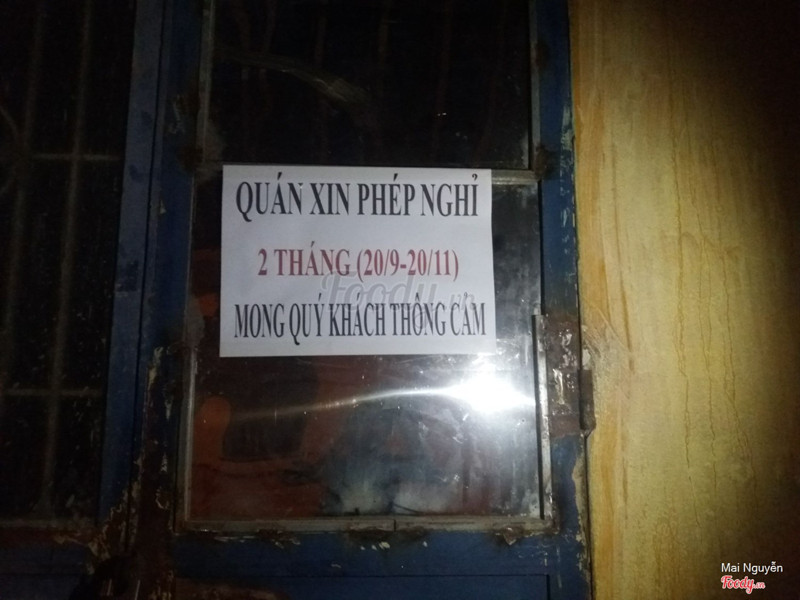 QUÁN XIN PHÉP NGHỈ
2 THÁNG (20/9-20/11)
MONG QUÝ KHÁCH THÔNG CẢM
Foody.vn
Mai Nguyễn
Foody.vn